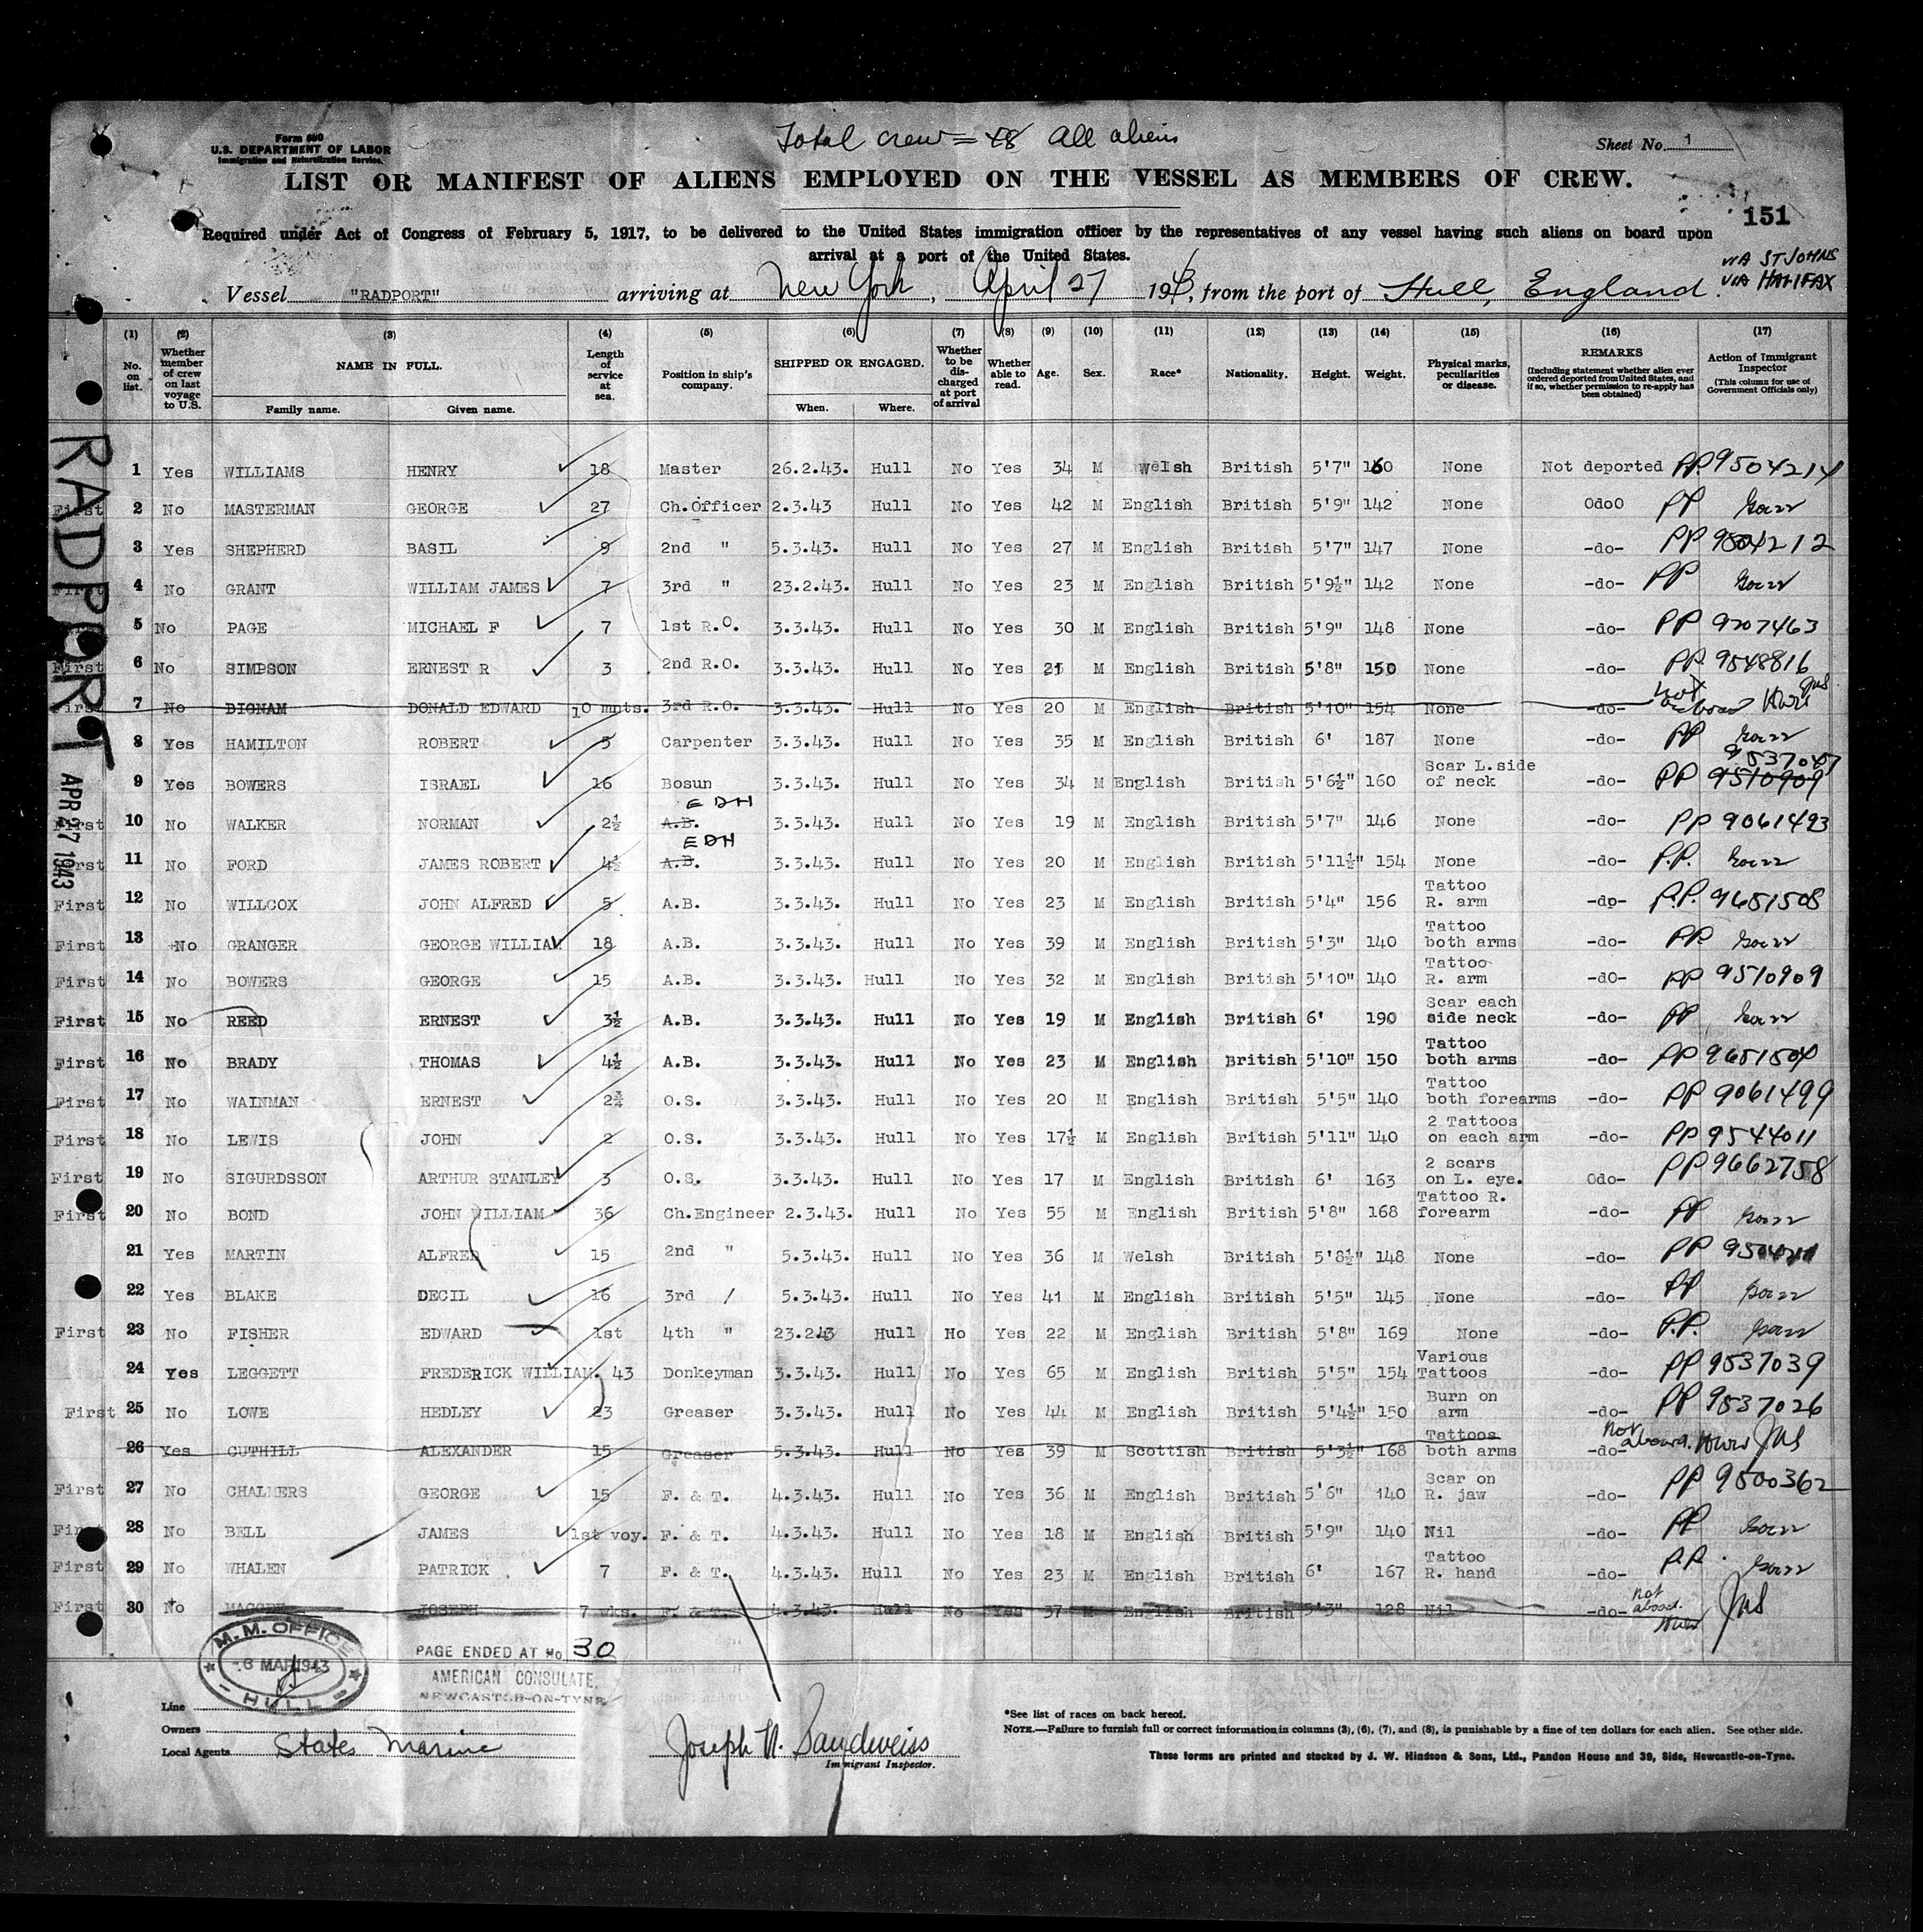 Form 680
U.S. DEPARTMENT OF LABOR
Immigration and Naturalization Service.
Total crew = 48 All aliens
Sheet No. 1
LIST OR MANIFEST OF ALIENS EMPLOYED ON THE VESSEL AS MEMBERS OF CREW.
151
Required under Act of Congress of February 5, 1917, to be delivered to the United States immigration officer by the representatives of any vessel having such aliens on board upon
arrival at a port of the United States.
VIA ST JOHNS
VIA HALIFAX
Vessel "RADPORT" arriving at New York, April 27 1943, from the port of Hull, England.
(1) (2) (3) (4) (5) (6) (7) (8) (9) (10) (11) (12) (13) (14) (15) (16) (17)
No. on list.
Whether member of crew on last voyage to U.S.
NAME IN FULL.
Family name. Given name.
Length of service at sea.
Position in ship's company.
SHIPPED OR ENGAGED.
When. Where.
Whether to be discharged at port of arrival
Whether able to read.
Age.
Sex.
Race*
Nationality.
Height.
Weight.
Physical marks, peculiarities or disease.
REMARKS
(Including statement whether alien ever ordered deported from United States, and if so, whether permission to re-apply has been obtained)
Action of Immigrant Inspector
(This column for use of Government Officials only)
RADPORT
APR 27 1943
1 Yes WILLIAMS HENRY 18 Master 26.2.43. Hull No Yes 34 M Welsh British 5'7" 160 None Not deported PP 9504214
First 2 No MASTERMAN GEORGE 27 Ch.Officer 2.3.43 Hull No Yes 42 M English British 5'9" 142 None OdoO PP
3 Yes SHEPHERD BASIL 9 2nd " 5.3.43. Hull No Yes 27 M English British 5'7" 147 None -do- PP 9504212
First 4 No GRANT WILLIAM JAMES 7 3rd " 23.2.43. Hull No Yes 23 M English British 5'9½" 142 None -do- PP
5 No PAGE MICHAEL F 7 1st R.O. 3.3.43. Hull No Yes 30 M English British 5'9" 148 None -do- PP 9207463
First 6 No SIMPSON ERNEST R 3 2nd R.O. 3.3.43. Hull No Yes 21 M English British 5'8" 150 None -do- PP. 9548816
First 7 No DIGNAM DONALD EDWARD 10 mnts. 3rd R.O. 3.3.43. Hull No Yes 20 M English British 5'10" 154 None -do- not aboard
8 Yes HAMILTON ROBERT 5 Carpenter 3.3.43. Hull No Yes 35 M English British 6' 187 None -do- PP
9 Yes BOWERS ISRAEL 16 Bosun 3.3.43. Hull No Yes 34 M English British 5'6½" 160 Scar L.side of neck -do- PP 9510909 9537047
First 10 No WALKER NORMAN 2½ A.B. EDH 3.3.43. Hull No Yes 19 M English British 5'7" 146 None -do- PP 9061493
First 11 No FORD JAMES ROBERT 4½ A.B. EDH 3.3.43. Hull No Yes 20 M English British 5'11½" 154 None -do- P.P.
First 12 No WILLCOX JOHN ALFRED 5 A.B. 3.3.43. Hull No Yes 23 M English British 5'4" 156 Tattoo R. arm -do- P.P. 9651508
First 13 No GRANGER GEORGE WILLIAM 18 A.B. 3.3.43. Hull No Yes 39 M English British 5'3" 140 Tattoo both arms -do- PP.
First 14 No BOWERS GEORGE 15 A.B. 3.3.43. Hull No Yes 32 M English British 5'10" 140 Tattoo R. arm -dO- PP 9510909
First 15 No REED ERNEST 3½ A.B. 3.3.43. Hull No Yes 19 M English British 6' 190 Scar each side neck -do- PP
First 16 No BRADY THOMAS 4½ A.B. 3.3.43. Hull No Yes 23 M English British 5'10" 150 Tattoo both arms -do- PP 9651504
First 17 No WAINMAN ERNEST 2¾ O.S. 3.3.43. Hull No Yes 20 M English British 5'5" 140 Tattoo both forearms -do- PP 9061499
First 18 No LEWIS JOHN 2 O.S. 3.3.43. Hull No Yes 17½ M English British 5'11" 140 2 Tattoos on each arm -do- PP 9544011
First 19 No SIGURDSSON ARTHUR STANLEY 3 O.S. 3.3.43. Hull No Yes 17 M English British 6' 163 2 scars on L. eye. Odo- PP 9662758
First 20 No BOND JOHN WILLIAM 36 Ch.Engineer 2.3.43. Hull No Yes 55 M English British 5'8" 168 Tattoo R. forearm -do- PP
21 Yes MARTIN ALFRED 15 2nd " 5.3.43. Hull No Yes 36 M Welsh British 5'8½" 148 None -do- PP
22 Yes BLAKE DECIL 16 3rd / 5.3.43. Hull No Yes 41 M English British 5'5" 145 None -do- PP
First 23 No FISHER EDWARD 1st 4th " 23.2.43 Hull No Yes 22 M English British 5'8" 169 None -do- P.P.
24 Yes LEGGETT FREDERICK WILLIAM. 43 Donkeyman 3.3.43. Hull No Yes 65 M English British 5'5" 154 Various Tattoos -do- PP 9537039
First 25 No LOWE HEDLEY 23 Greaser 3.3.43. Hull No Yes 44 M English British 5'4½" 150 Burn on arm -do- PP 9537026
26 Yes CUTHILL ALEXANDER 15 Greaser 5.3.43. Hull No Yes 39 M Scottish British 5'3½" 168 Tattoos both arms -do- not aboard.
First 27 No CHALMERS GEORGE 15 F. & T. 4.3.43. Hull No Yes 36 M English British 5'6" 140 Scar on R. jaw -do- PP 9500362
First 28 No BELL JAMES 1st voy. F. & T. 4.3.43. Hull No Yes 18 M English British 5'9" 140 Nil -do- PP
First 29 No WHALEN PATRICK 7 F. & T. 4.3.43. Hull No Yes 23 M English British 6' 167 Tattoo R. hand -do- P.P.
First 30 No JOSEPH 7 wks. F. & T. 4.3.43. Hull No Yes 37 M English British 5'3" 128 Nil -do- not aboard.
M.M. OFFICE
6 MAR 1943
HULL
PAGE ENDED AT No. 30
AMERICAN CONSULATE,
NEWCASTLE-ON-TYNE
Line
Owners
Local Agents States Marine
Joseph N. Sandweiss
Immigrant Inspector.
*See list of races on back hereof.
NOTE.—Failure to furnish full or correct information in columns (3), (6), (7), and (8), is punishable by a fine of ten dollars for each alien. See other side.
These forms are printed and stocked by J. W. Hindson & Sons, Ltd., Pandon House and 39, Side, Newcastle-on-Tyne.